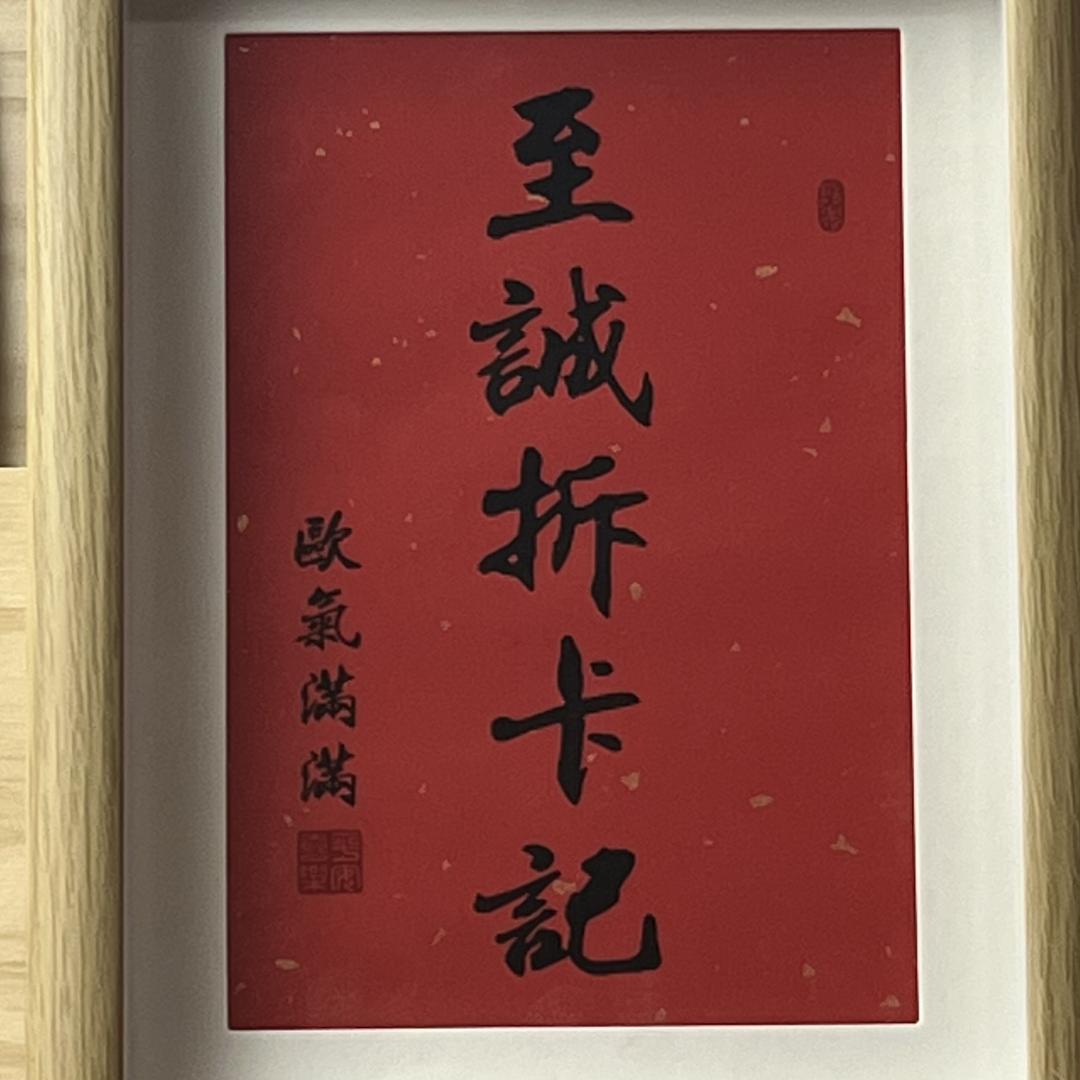 至誠拆卡記
歐氣滿滿